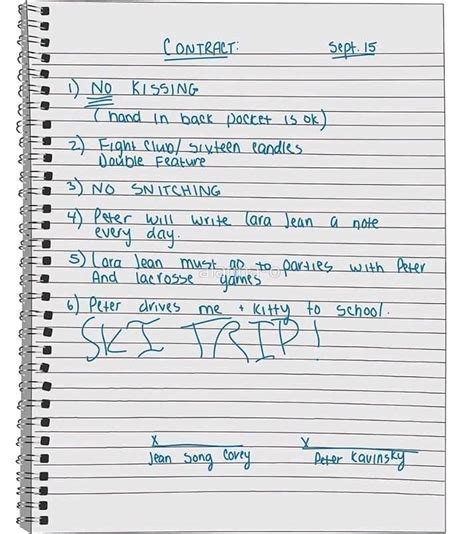 CONTRACT: Sept. 15
1) NO KISSING
(hand in back pocket is ok)
2) Fight Club/ Sixteen candles
Double Feature
3) NO SNITCHING
4) Peter will write Lara Jean a note
every day.
5) Lara Jean must go to parties with Peter
And lacrosse games
6) Peter drives me + Kitty to school.
SKI TRIP!
x x
Jean Song Covey Peter Kavinsky